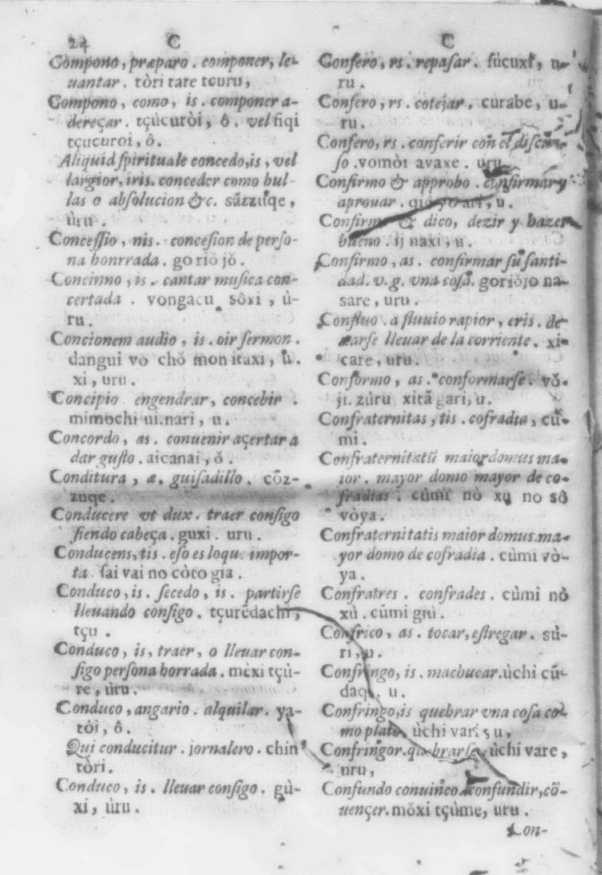 24 C
Compono, præparo. componer, le-
uantar. tòri tate tçuru,
Compono, como, is. componer a-
dereçar. tçùcuròi, ô. vel fiqi
tçucuroi, ô.
Aliquid spirituale concedo, is, vel
largior, iris. conceder como bul-
las o absolucion &c. sāzzuqe,
ùru.
Concessio, nis. concesion de perso-
na honrrada. go riō jô.
Concinno, is. cantar musica con-
certada. vongacu sôxi, ù-
ru.
Concionem audio, is. oir sermon.
dangui vo chŏ mon itaxi, u.
xi, uru.
Concipio engendrar, concebir.
mimochi ui. nari, u.
Concordo, as. conuenir açertar a
dar gusto. aicanai, ŏ.
Conditura, æ. guisadillo. cōz-
zuqe.
Conducere vt dux. traer consigo
siendo cabeça. guxi. uru.
Conducens, tis. eso es loqu. impor-
ta sai vai no còto gia.
Conduco, is. secedo, is. partirse
lleuando consigo. tçurēdachi,
tçu.
Conduco, is, traer, o lleuar con-
sigo persona horrada. mèxi tçù-
re, ùru.
Conduco, angario. alquilar. ya-
tòi, ô.
Qui conducitur. jornalero. chin
tòri.
Conduco, is. lleuar consigo. gù-
xi, ùru.
C
Confero, rs. repasar. fùcuxi, u-
ru.
Confero, rs. cotejar. curabe, u-
ru.
Confero, rs. conferir con el discur-
so. vomòi avaxe. uru.
Confirmo & approbo. confirmar y
aprouar. yari, u.
Confirmo & dico, dezir y hazer
bueno. ij naxi, u.
Confirmo, as. confirmar su santi-
dad. v.g. vna cosa. goriōjo na-
sare, uru.
Confluo. a fluuio rapior, eris. de-
xarse lleuar de la corriente. xi-
care, uru.
Conformo, as. conformarse. vŏ-
ji. zùru xitā gari, u.
Confraternitas, tis. cofradia, cū-
mi.
Confraternitatū maior domus ma-
ior. mayor domo mayor de co-
fradias. cùmi nò xu no sô
vòya.
Confraternitatis maior domus. ma-
yor domo de cofradia. cùmi vò-
ya.
Confratres. confrades. cùmi nò
xù. cùmi giù.
Confrico, as. tocar, estregar. sù-
ri, u.
Confringo, is. machucar. ùchi cū-
daqi, u.
Confringo, is quebrar vna cosa co-
mo plato. ùchi vari, u,
Confringor. quebrarse. ùchi vare,
uru,
Confundo conuinco. confundir, cō-
uençer. mŏxi tçùme, uru.
Con-